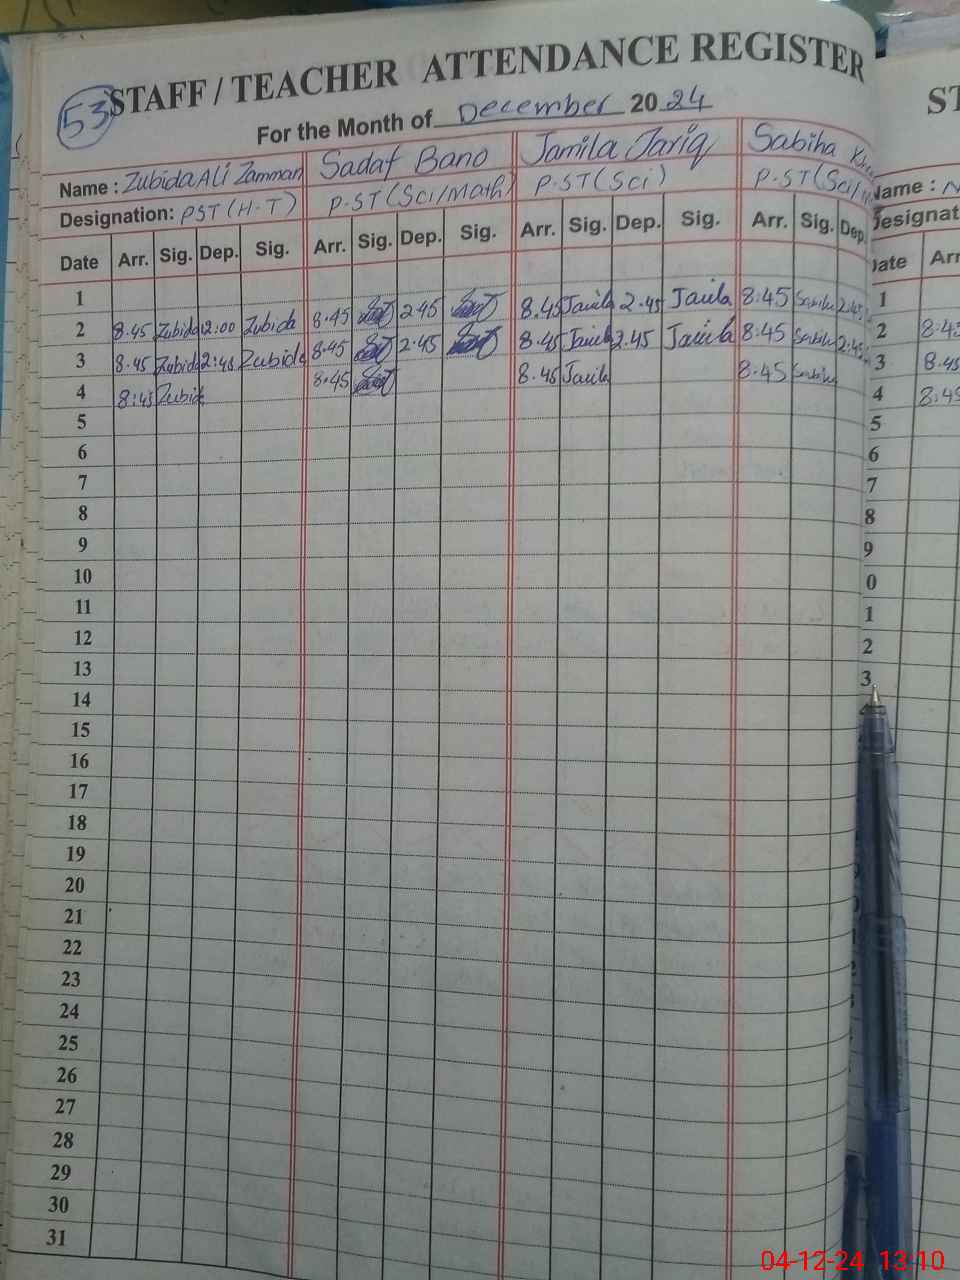 STAFF / TEACHER ATTENDANCE REGISTER
53
For the Month of December 2024
Name : Zubida Ali Zamman Sadaf Bano Jamila Tariq Sabiha
Designation: PST (H-T) P.ST (Sci/Math) P.ST (Sci) P.ST (Sci/
Date Arr. Sig. Dep. Sig. Arr. Sig. Dep. Sig. Arr. Sig. Dep. Sig. Arr. Sig. Dep.
1
2 8.45 Zubida 12:00 Zubida 8.45 2.45 8.45 Jamila 2.45 Jamila 8:45 Sabiha 2.45
3 8.45 Zubida 2:45 Zubida 8.45 2.45 8.45 Jamila 2.45 Jamila 8:45 Sabiha 2.45
4 8:45 Zubida 8.45 8.45 Jamila 8.45 Sabiha
5
6
7
8
9
10
11
12
13
14
15
16
17
18
19
20
21
22
23
24
25
26
27
28
29
30
31
ST
Name :
Designat
Date Arr
1
2 8:45
3 8.45
4 8:45
5
6
7
8
9
0
1
2
3
04-12-24 13-10